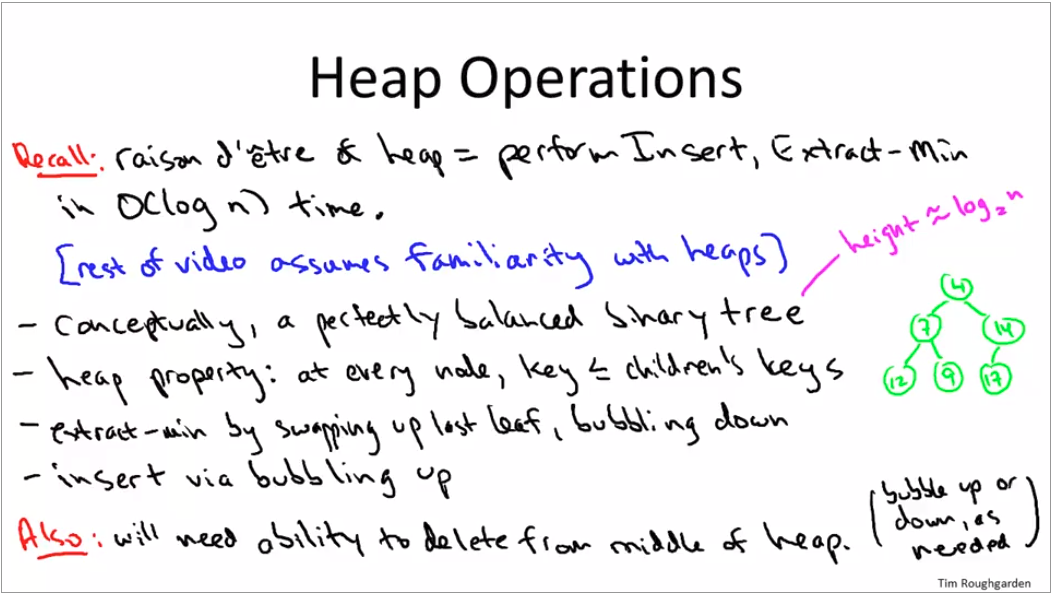 Heap Operations
Recall: raison d'être of heap = perform Insert, Extract-Min
in O(log n) time.
[rest of video assumes familiarity with heaps]
height ≈ log₂n
- conceptually, a perfectly balanced binary tree
- heap property: at every node, key ≤ children's keys
- extract-min by swapping up last leaf, bubbling down
- insert via bubbling up
4
7 14
12 9 17
Also: will need ability to delete from middle of heap.
(bubble up or
down, as
needed)
Tim Roughgarden